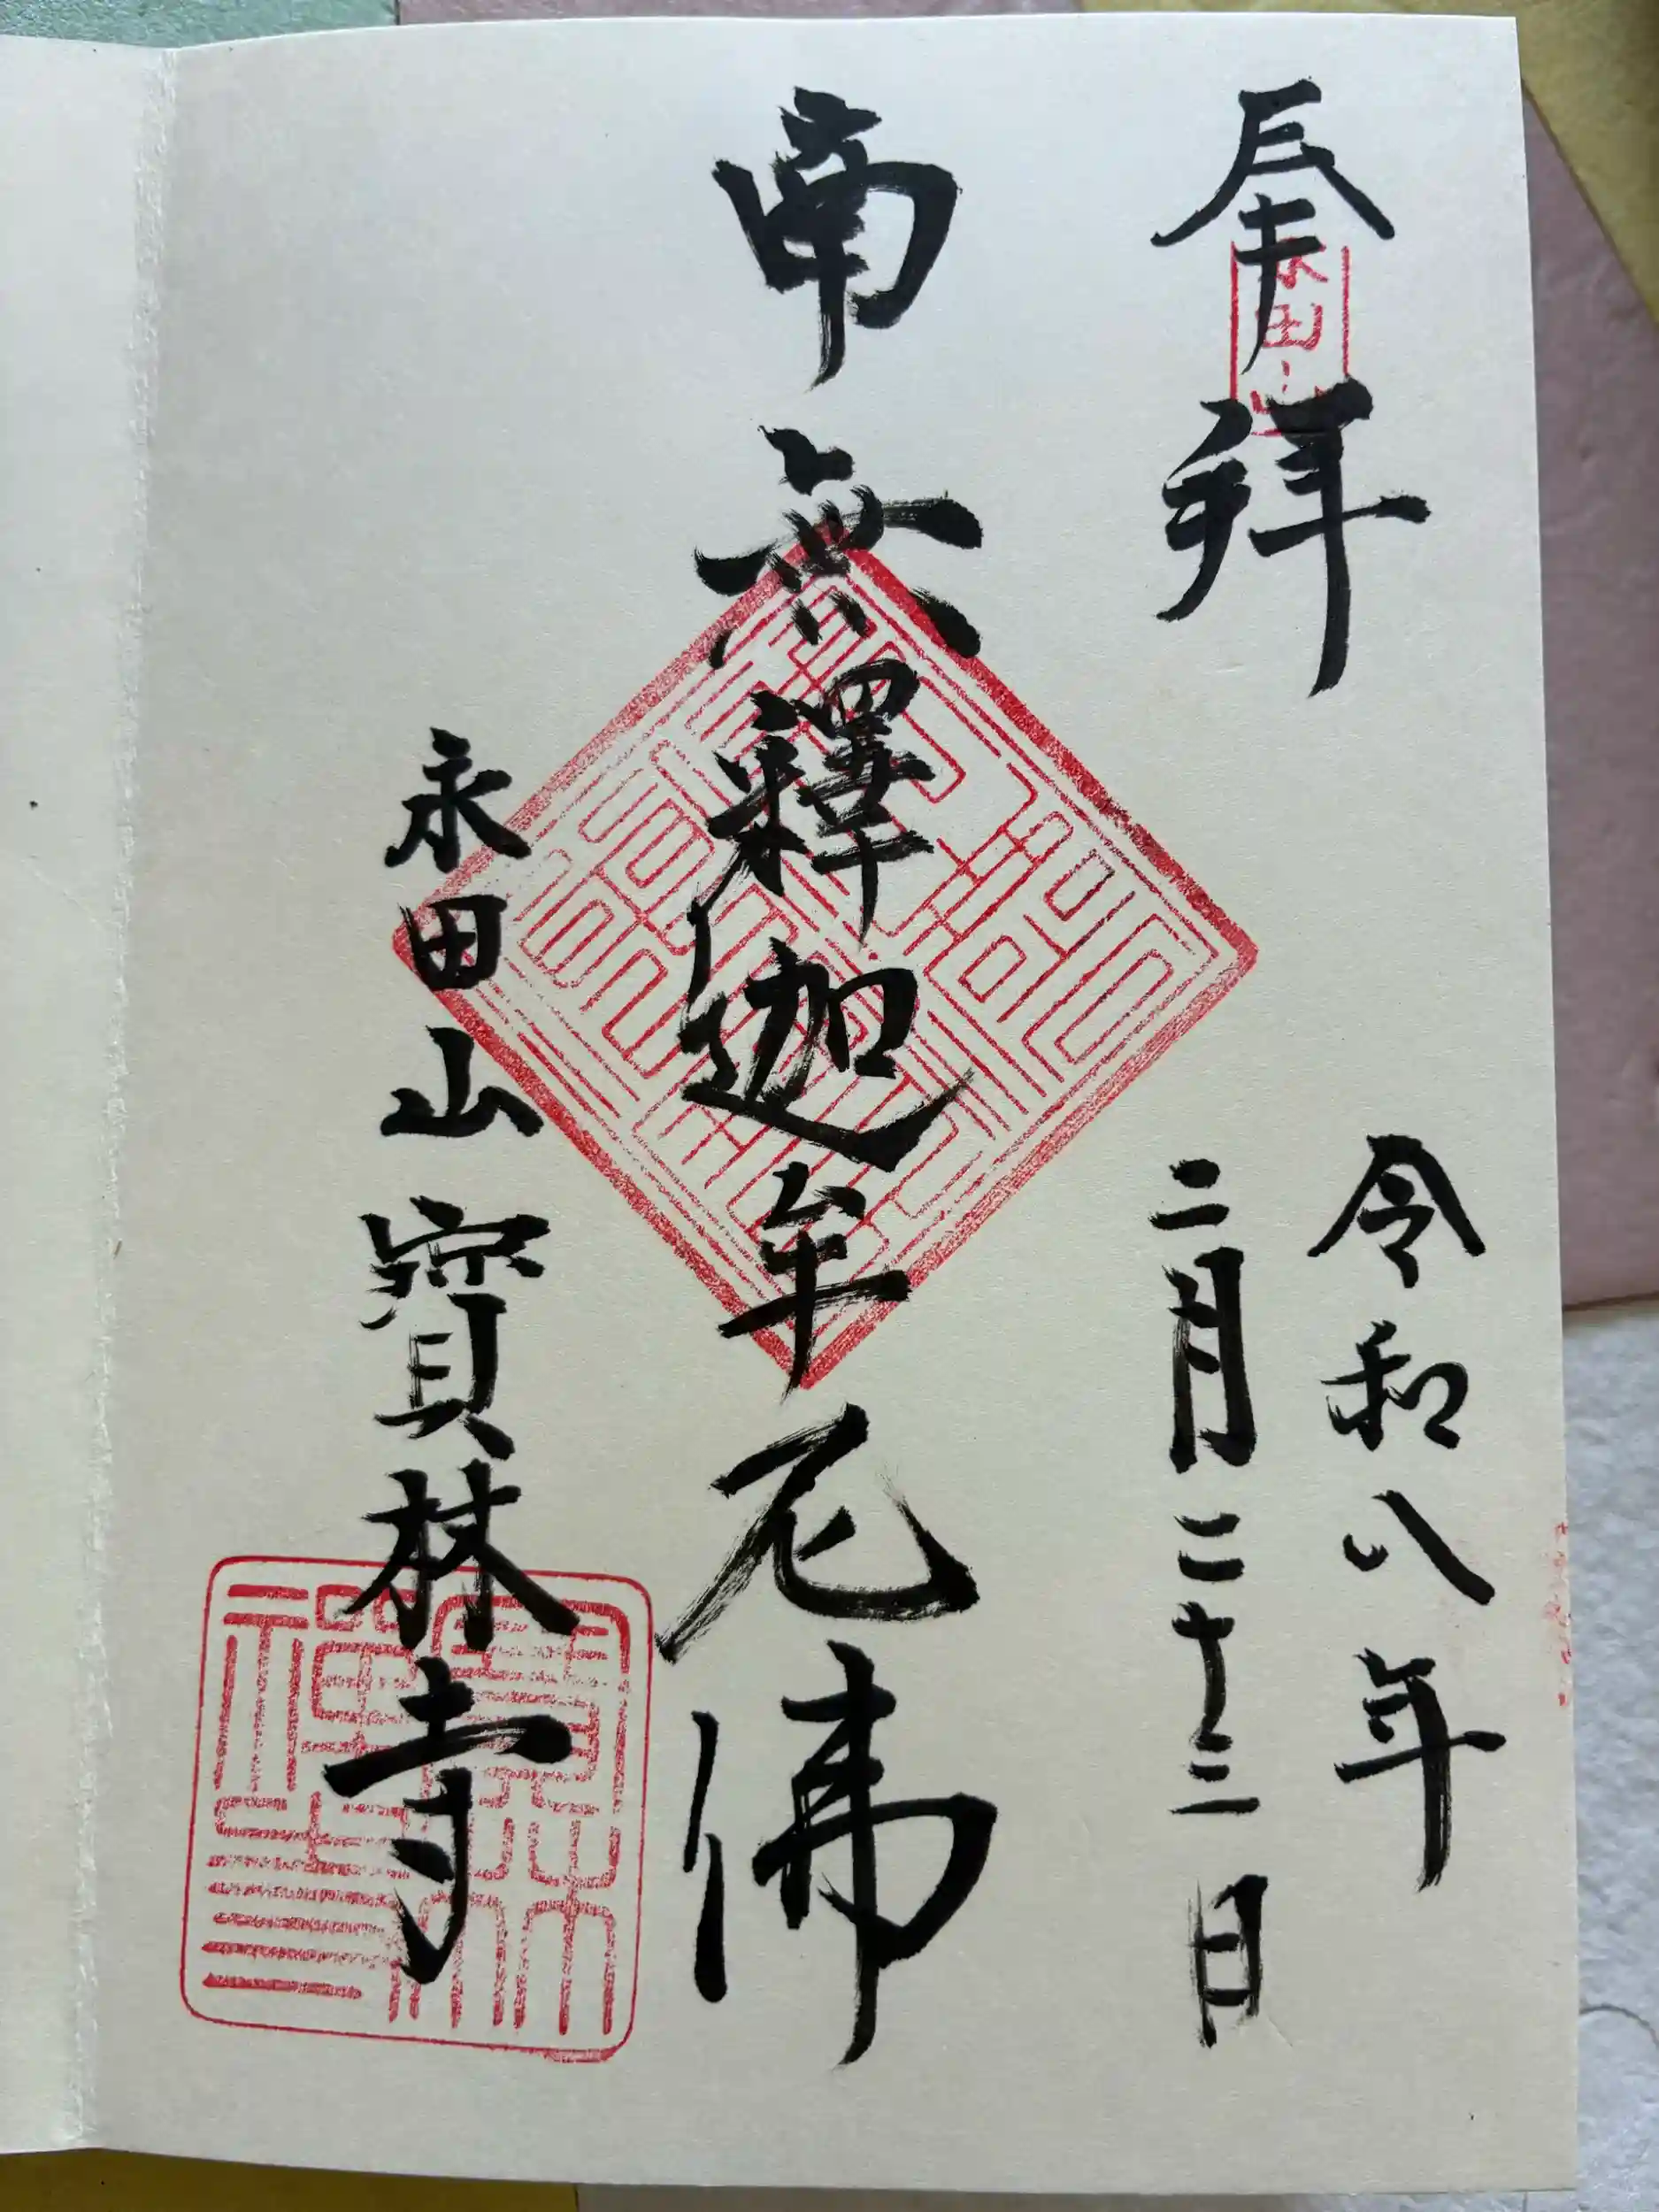 奉拝
永田山
令和八年
二月二十三日
南無釋迦牟尼佛
永田山寶林寺